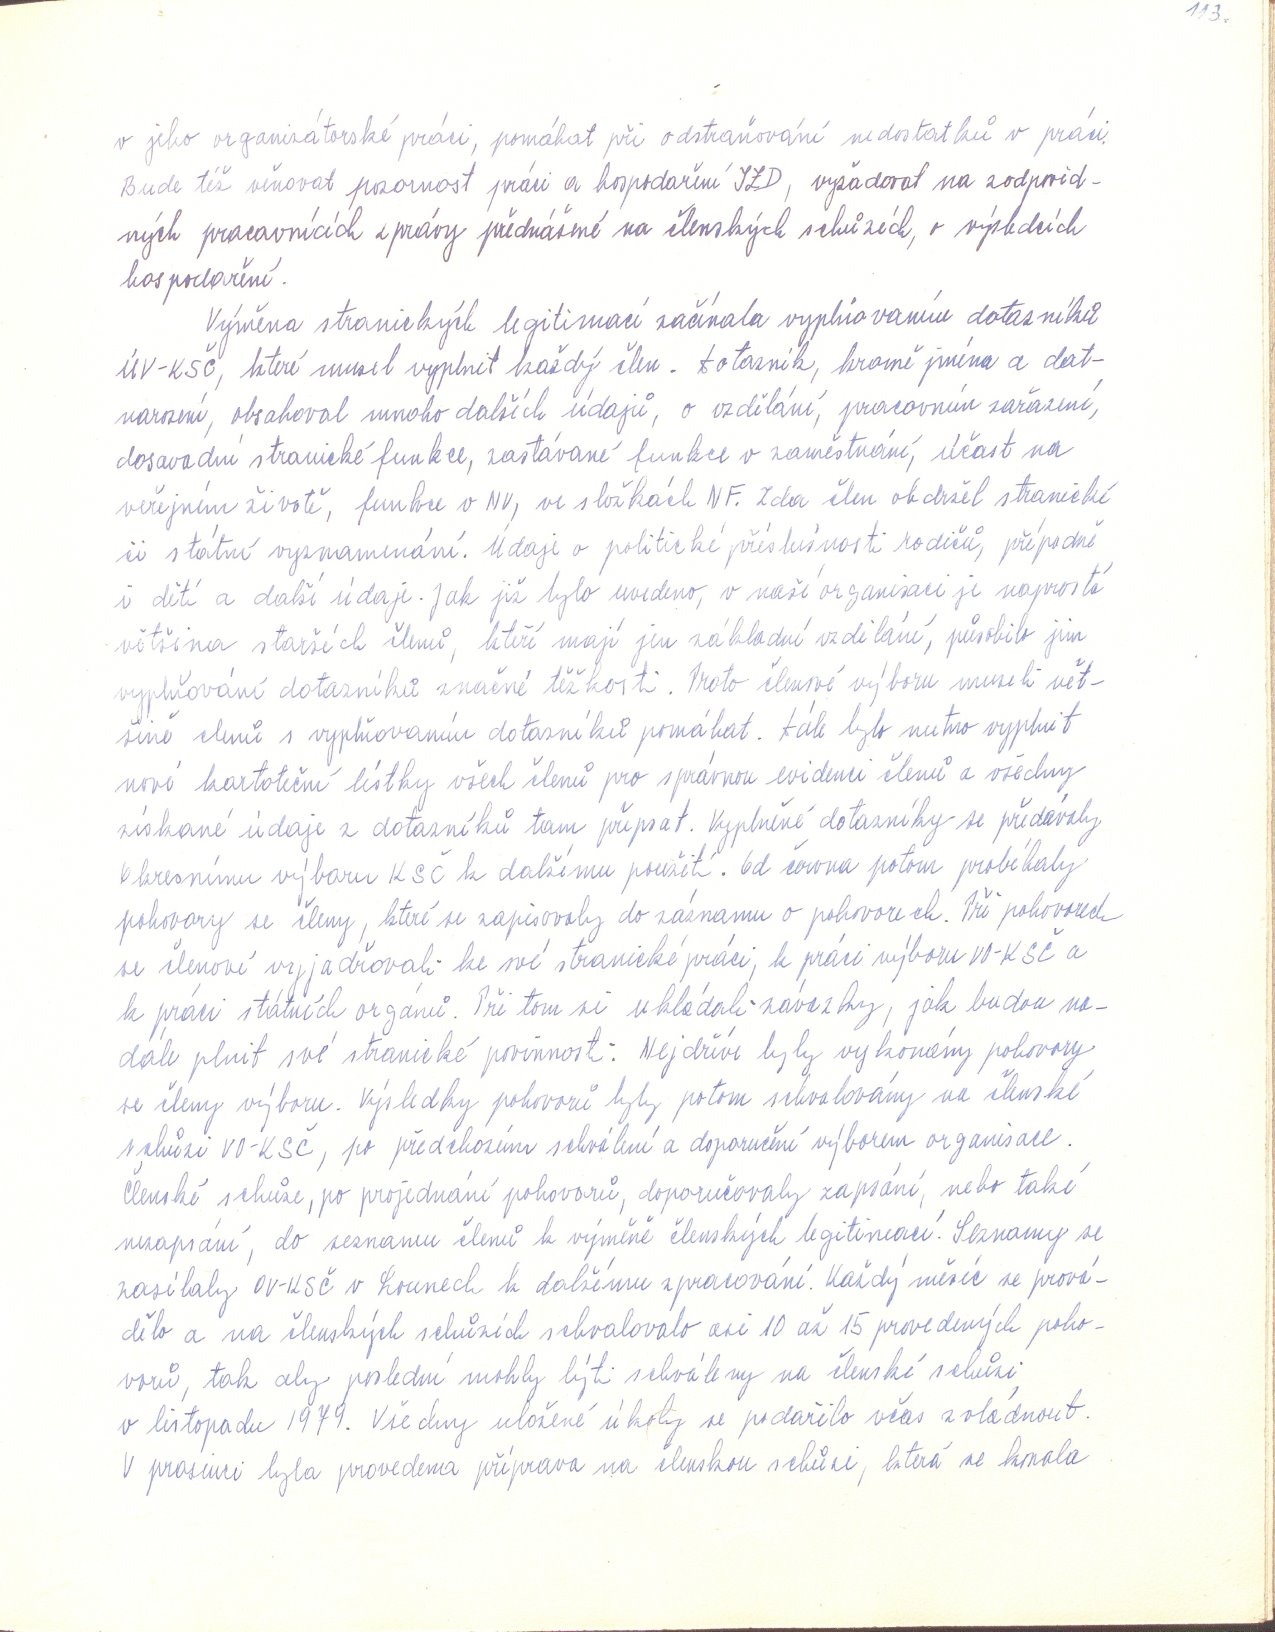 113.
v jeho organizátorské práci, pomáhat při odstraňování nedostatků v práci.
Bude též věnovat pozornost práci a hospodaření JZD, vyžadovat na zodpověd-
ných pracovnících zprávy přednášené na členských schůzích, o výsledcích
hospodaření.
Výměna stranických legitimací začínala vyplňováním dotazníků
ÚV-KSČ, které musel vyplnit každý člen. Dotazník, kromě jména a dat-
narození, obsahoval mnoho dalších údajů, o vzdělání, pracovním zařazení,
dosavadní stranické funkce, zastávané funkce v zaměstnání, účast na
veřejném životě, funkce v NV, ve složkách NF. Zda člen obdržel stranické
či státní vyznamenání. Údaje o politické příslušnosti rodičů, případně
i dětí a další údaje. Jak již bylo uvedeno, v naší organisaci je naprostá
většina starších členů, kteří mají jen základní vzdělání, působilo jim
vyplňování dotazníků značné těžkosti. Proto členové výboru museli vět-
šině členů s vyplňovaním dotazníků pomáhat. Dále bylo nutno vyplnit
nové kartoteční lístky všech členů pro správnou evidenci členů a všechny
získané údaje z dotazníků tam připsat. Vyplněné dotazníky se předávaly
Okresnímu výboru KSČ k dalšímu použití. Od června potom probíhaly
pohovory se členy, které se zapisovaly do záznamu o pohovorech. Při pohovorech
se členové vyjadřovali ke své stranické práci, k práci výboru VO-KSČ a
k práci státních orgánů. Při tom si ukládali závazky, jak budou na-
dále plnit své stranické povinnosti. Nejdříve byly vykonány pohovory
se členy výboru. Výsledky pohovorů byly potom schvalovány na členské
schůzi VO-KSČ, po předchozím schválení a doporučení výborem organisace.
Členské schůze, po projednání pohovorů, doporučovaly zapsání, nebo také
nezapsání, do seznamu členů k výměně členských legitimací. Seznamy se
zasílaly OV-KSČ v Lounech k dalšímu zpracování. Každý měsíc se prová-
dělo a na členských schůzích schvalovalo asi 10 až 15 provedených poho-
vorů, tak aby poslední mohly býti schváleny na členské schůzi
v listopadu 1979. Všechny uložené úkoly se podařilo včas zvládnout.
V prosinci byla provedena příprava na členskou schůzi, která se konala